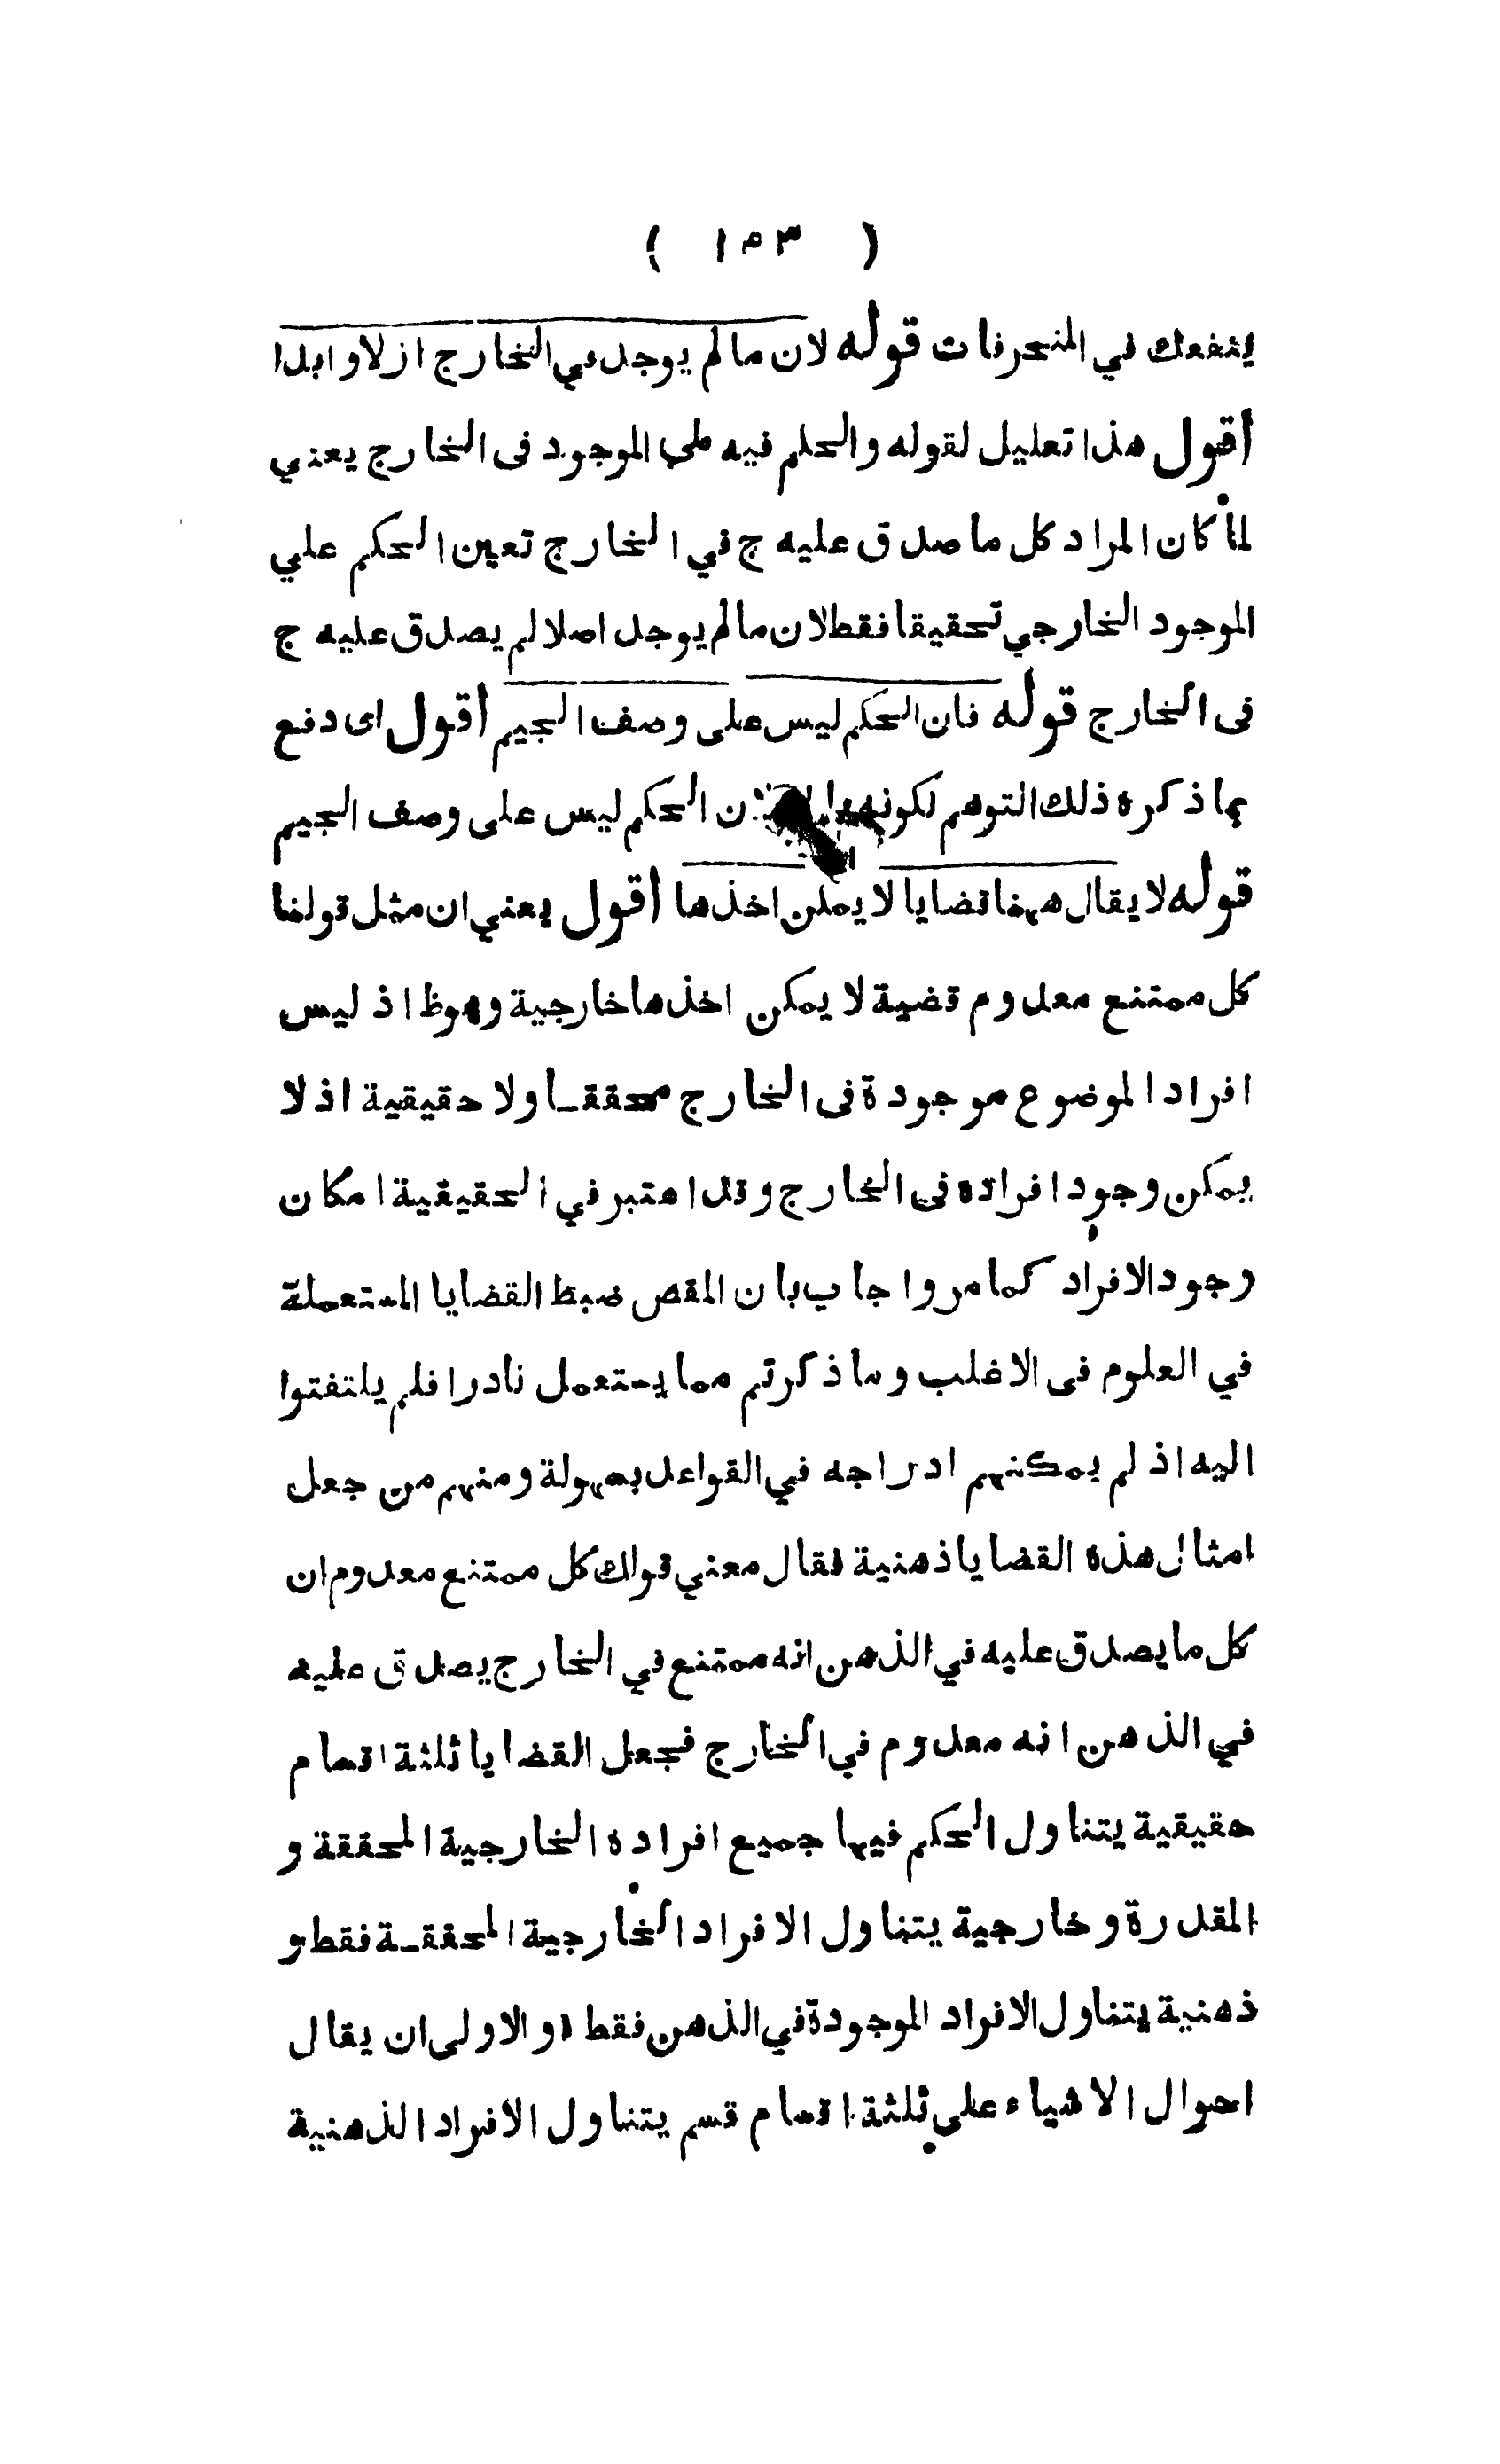 ( ١٥٣ )
ينفعك في المنحرفات قوله لان مالم يوجد في الخارج ازلا وابدا
أقول هذا تعليل لقوله والحكم فيه علي الموجود فى الخارج يعني
لما كان المراد كل ما صدق عليه ج في الخارج تعين الحكم علي
الموجود الخارجي تحقيقا فقط لان مالم يوجد اصلا لم يصدق عليه ج
فى الخارج قوله فان الحكم ليس على وصف الجيم أقول اى دفع
بما ذكره ذلك التوهم لكونه ان الحكم ليس على وصف الجيم
قوله لا يقال ههنا قضايا لا يمكن اخذها أقول يعني ان مثل قولنا
كل ممتنع معدوم قضية لا يمكن اخذها خارجية وهوظ اذ ليس
افراد الموضوع موجودة فى الخارج محققـا ولا حقيقية اذ لا
يمكن وجود افراده فى الخارج وقد اعتبر في الحقيقية امكان
وجود الافراد كما مر واجاب بان المقص ضبط القضايا المستعملة
في العلوم فى الاغلب وما ذكرتم مما يستعمل نادرا فلم يلتفتوا
اليه اذ لم يمكنهم ادراجه في القواعد بسهولة ومنهم من جعل
امثال هذه القضايا ذهنية فقال معني قولك كل ممتنع معدوم ان
كل ما يصدق عليه في الذهن انه ممتنع في الخارج يصدق عليه
في الذهن انه معدوم في الخارج فجعل القضايا ثلثة اقسام
حقيقية يتناول الحكم فيها جميع افراده الخارجية المحققة و
المقدرة وخارجية يتناول الافراد الخارجية المحققـة فقط و
ذهنية يتناول الافراد الموجودة في الذهن فقط والاولى ان يقال
احوال الاشياء على ثلثة اقسام قسم يتناول الافراد الذهنية